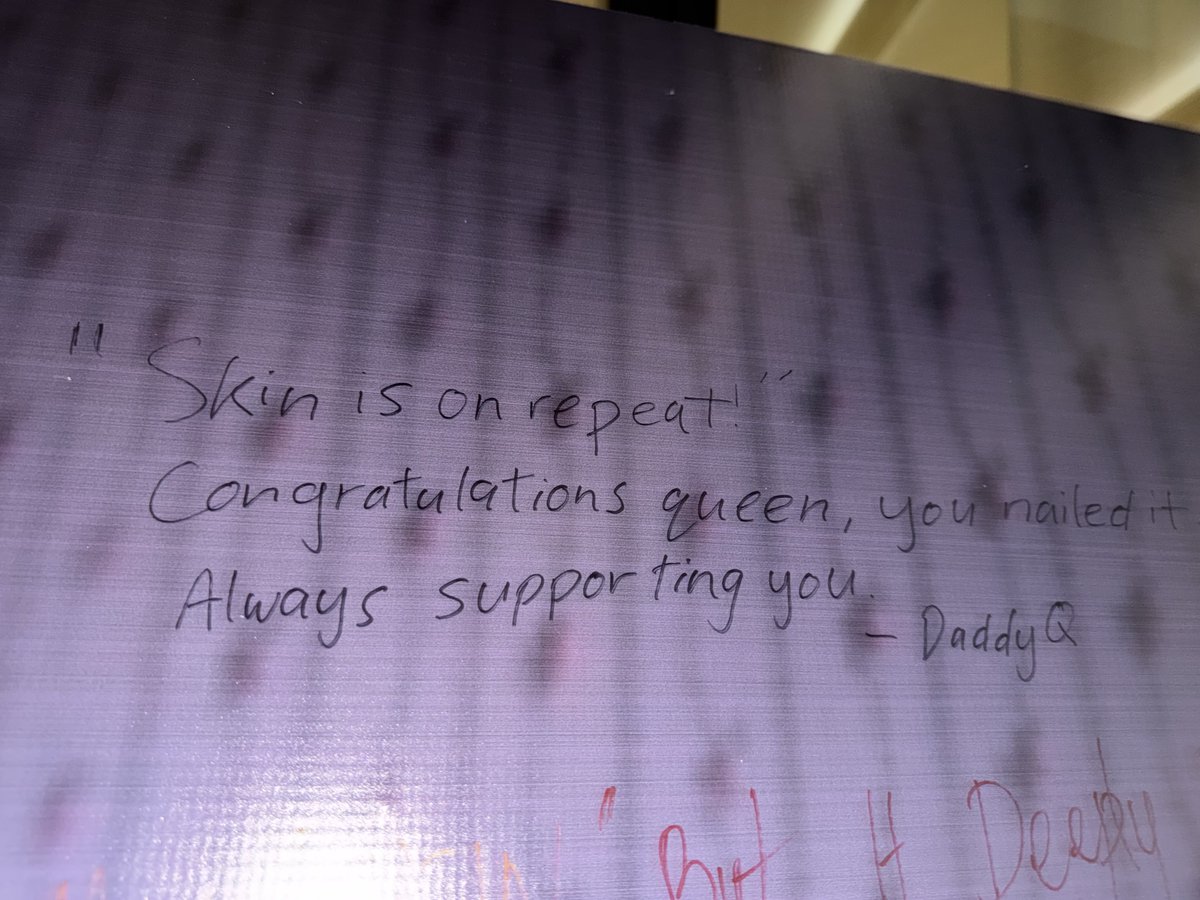 "Skin is on repeat!"
Congratulations queen, you nailed it
Always supporting you.
- Daddy Q
" Deeply